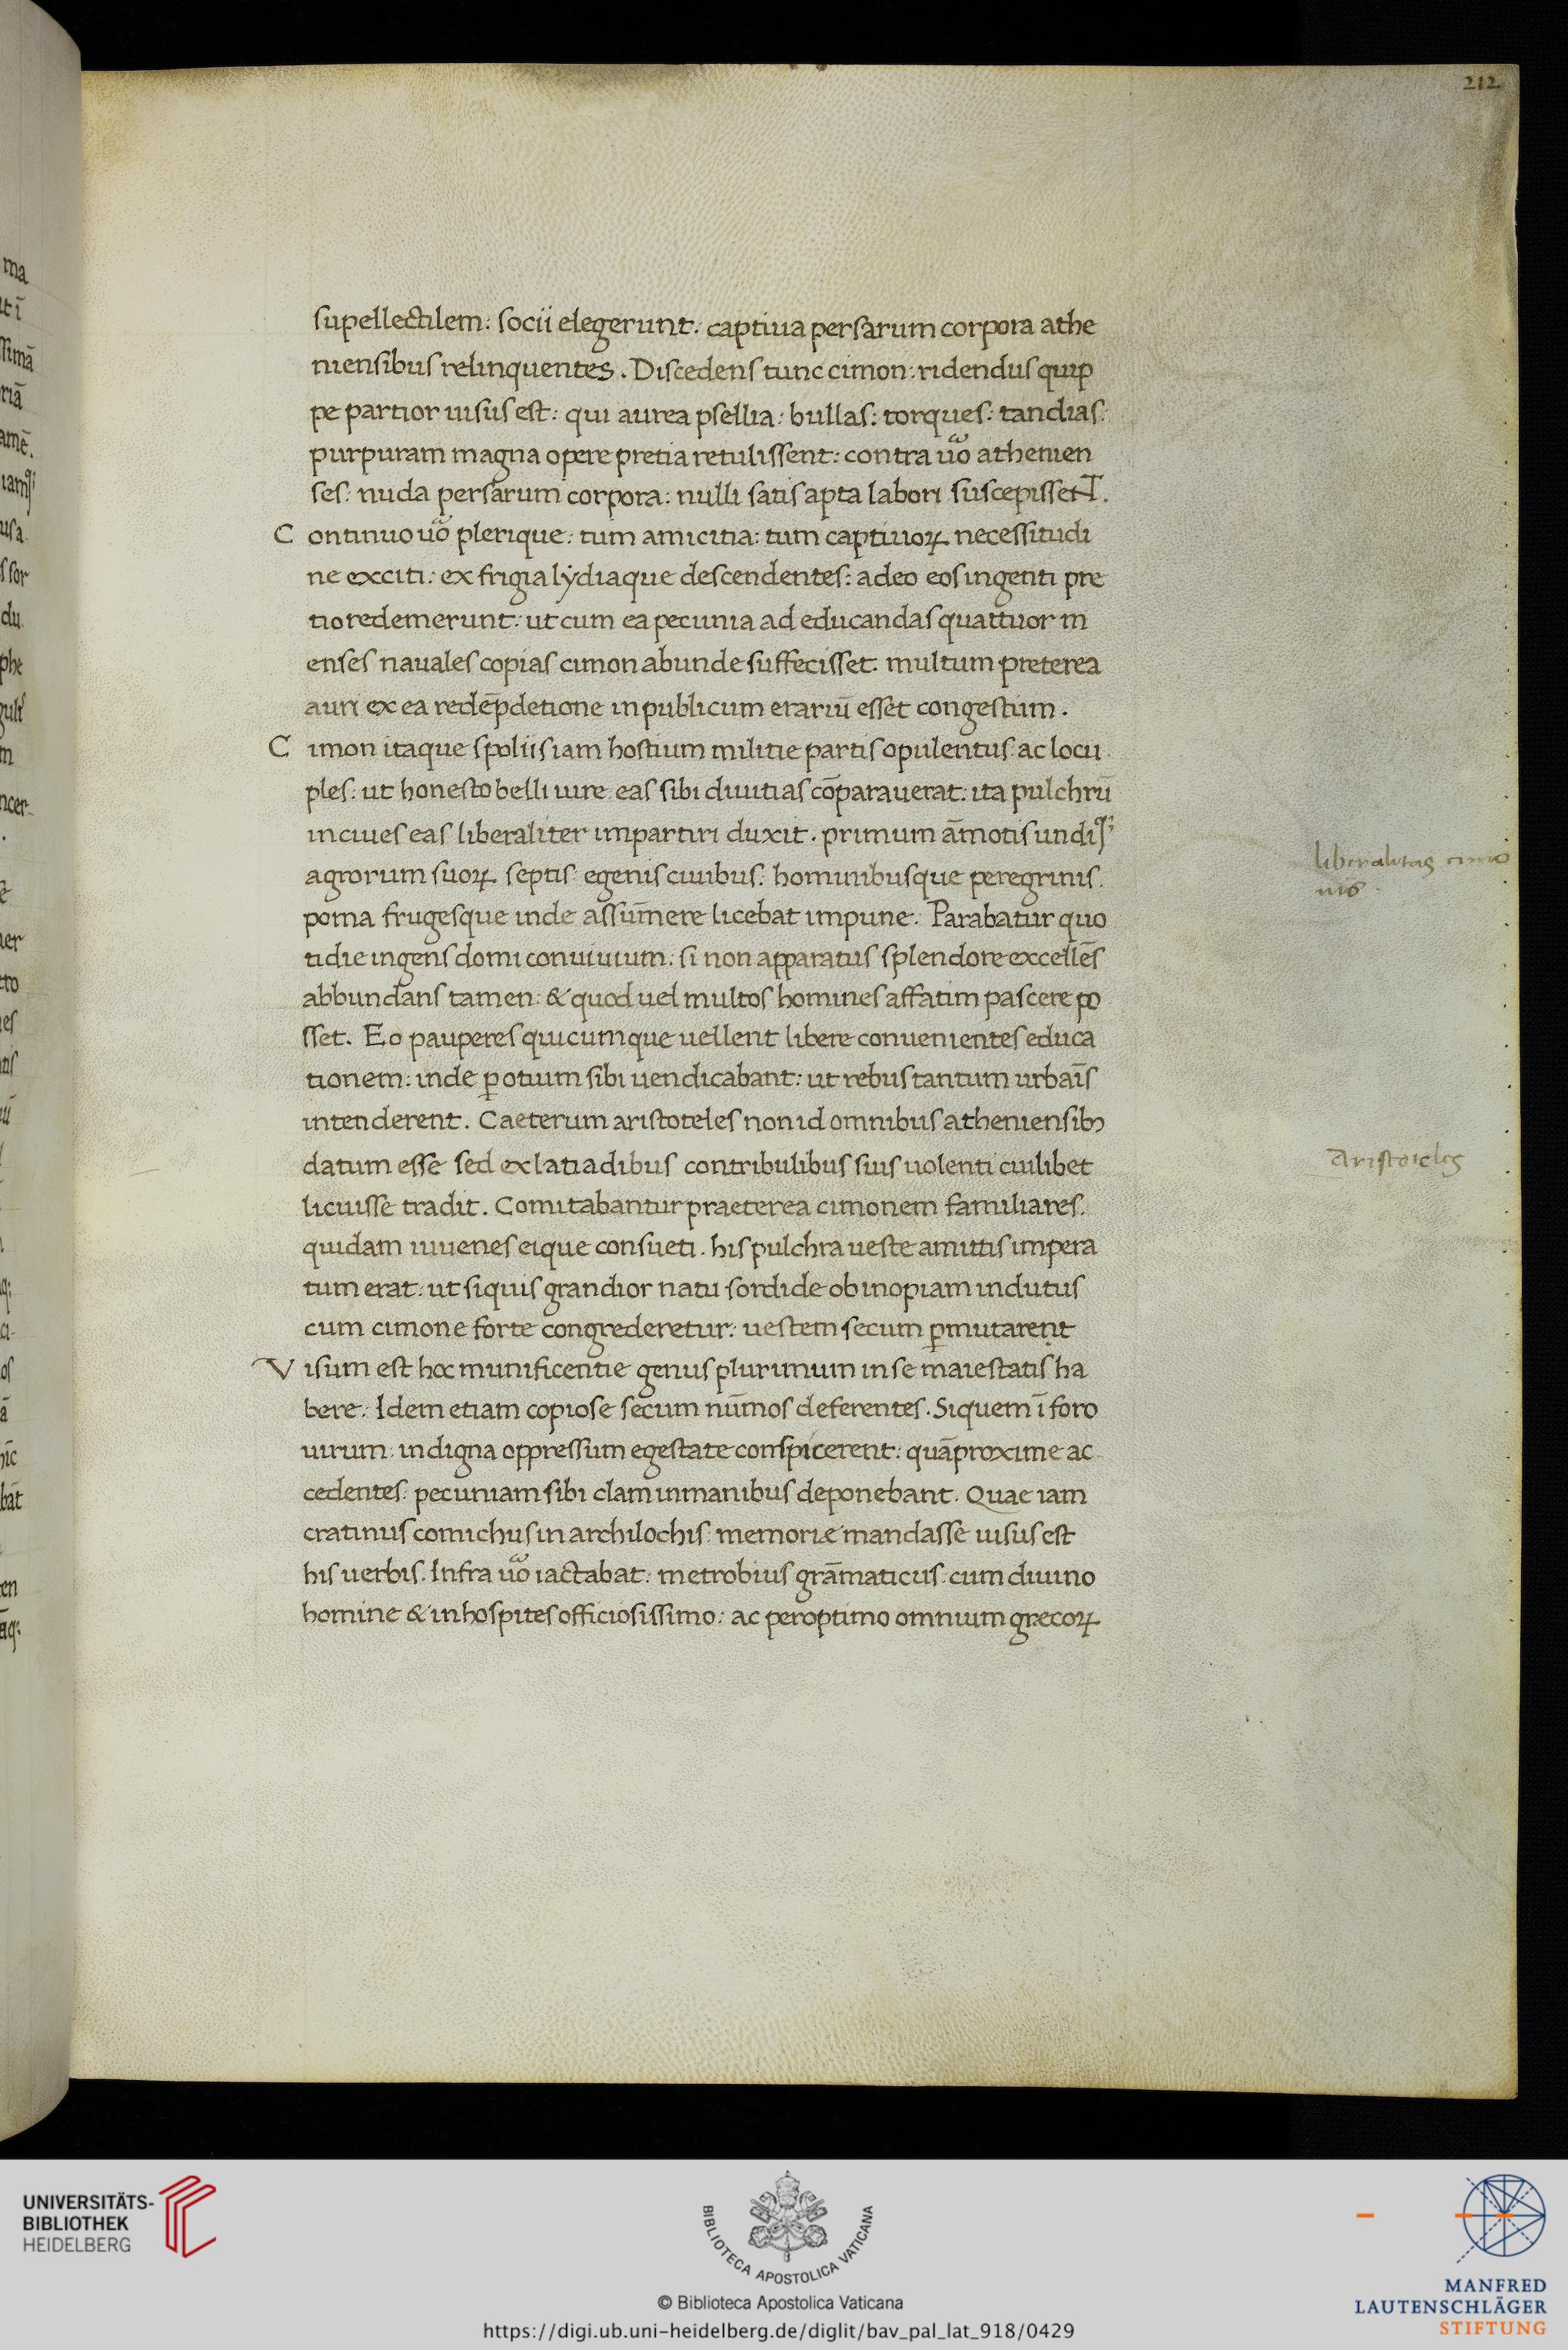 212
supellectilem: socii elegerunt: captiua persarum corpora athe
niensibus relinquentes. Discedens tunc cimon: ridendus quip
pe partior uisus est: qui aurea psellia: bullas: torques: tandias:
purpuram magna opere pretia retulissent: contra uo͂ athenien
ses: nuda persarum corpora: nulli satis apta labori suscepisseNT.
C ontinuo uo͂ plerique: tum amicitia: tum captiuoꝝ necessitudi
ne exciti: ex frigia lẏdiaque descendentes: adeo eos ingenti pre
tio redemerunt: ut cum ea pecunia ad educandas quattuor m
enses nauales copias cimon abunde suffecisset. multum preterea
auri ex ea redēpdetione in publicum erariū esset congestum.
C imon itaque spoliis iam hostium militie partis opulentus: ac locu
ples: ut honesto belli iure eas sibi diuitias cōparauerat: ita pulchrū
in ciues eas liberaliter impartiri duxit. primum āmotis undiqꝫ
agrorum suoꝝ septis: egenis ciuibus: hominibusque peregrinis:
poma frugesque inde assūmere licebat impune. Parabatur quo
tidie ingens domi conuiuium: si non apparatus splendore excellēs
abbundans tamen: & quod uel multos homines affatim pascere po
sset. Eo pauperes quicumque uellent libere conuenientes educa
tionem: inde ꝑ otium sibi uendicabant: ut rebus tantum urbaīs
intenderent. Caeterum aristoteles non id omnibus atheniensibꝫ
datum esse sed ex latiadibus contribulibus suis uolenti cuilibet
licuisse tradit. Comitabantur praeterea cimonem familiares:
quidam iuuenes eique consueti. his pulchra ueste amittis impera
tum erat: ut siquis grandior natu sordide ob inopiam indutus
cum cimone forte congrederetur: uestem secum ꝑmutarent
V isum est hoc munificentie genus plurimum in se maiestatis ha
bere: Idem etiam copiose secum nūmos deferentes. Siquem ī foro
uirum: indigna oppressum egestate conspicerent: quāproxime ac
cedentes: pecuniam sibi clam in manibus deponebant. Quae iam
cratinus comichus in archilochis: memoriæ mandasse uisus est
his uerbis. Infra uo͂ iactabat: metrobius grāmaticus: cum diuino
homine & inhospites officiosissimo: ac peroptimo omnium grecoꝝ
liberalitas cimo
nis.
Aristoteles
UNIVERSITÄTS-
BIBLIOTHEK
HEIDELBERG
BIBLIOTECA APOSTOLICA VATICANA
© Biblioteca Apostolica Vaticana
https://digi.ub.uni-heidelberg.de/diglit/bav_pal_lat_918/0429
MANFRED
LAUTENSCHLÄGER
STIFTUNG